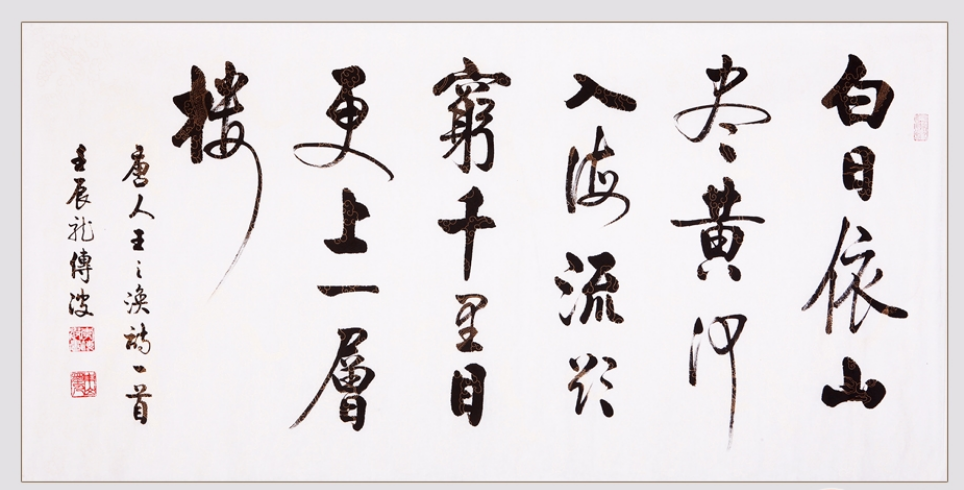 白日依山
尽黄河
入海流欲
窮千里目
更上一層
楼
唐人王之涣詩一首
壬辰龙傳波